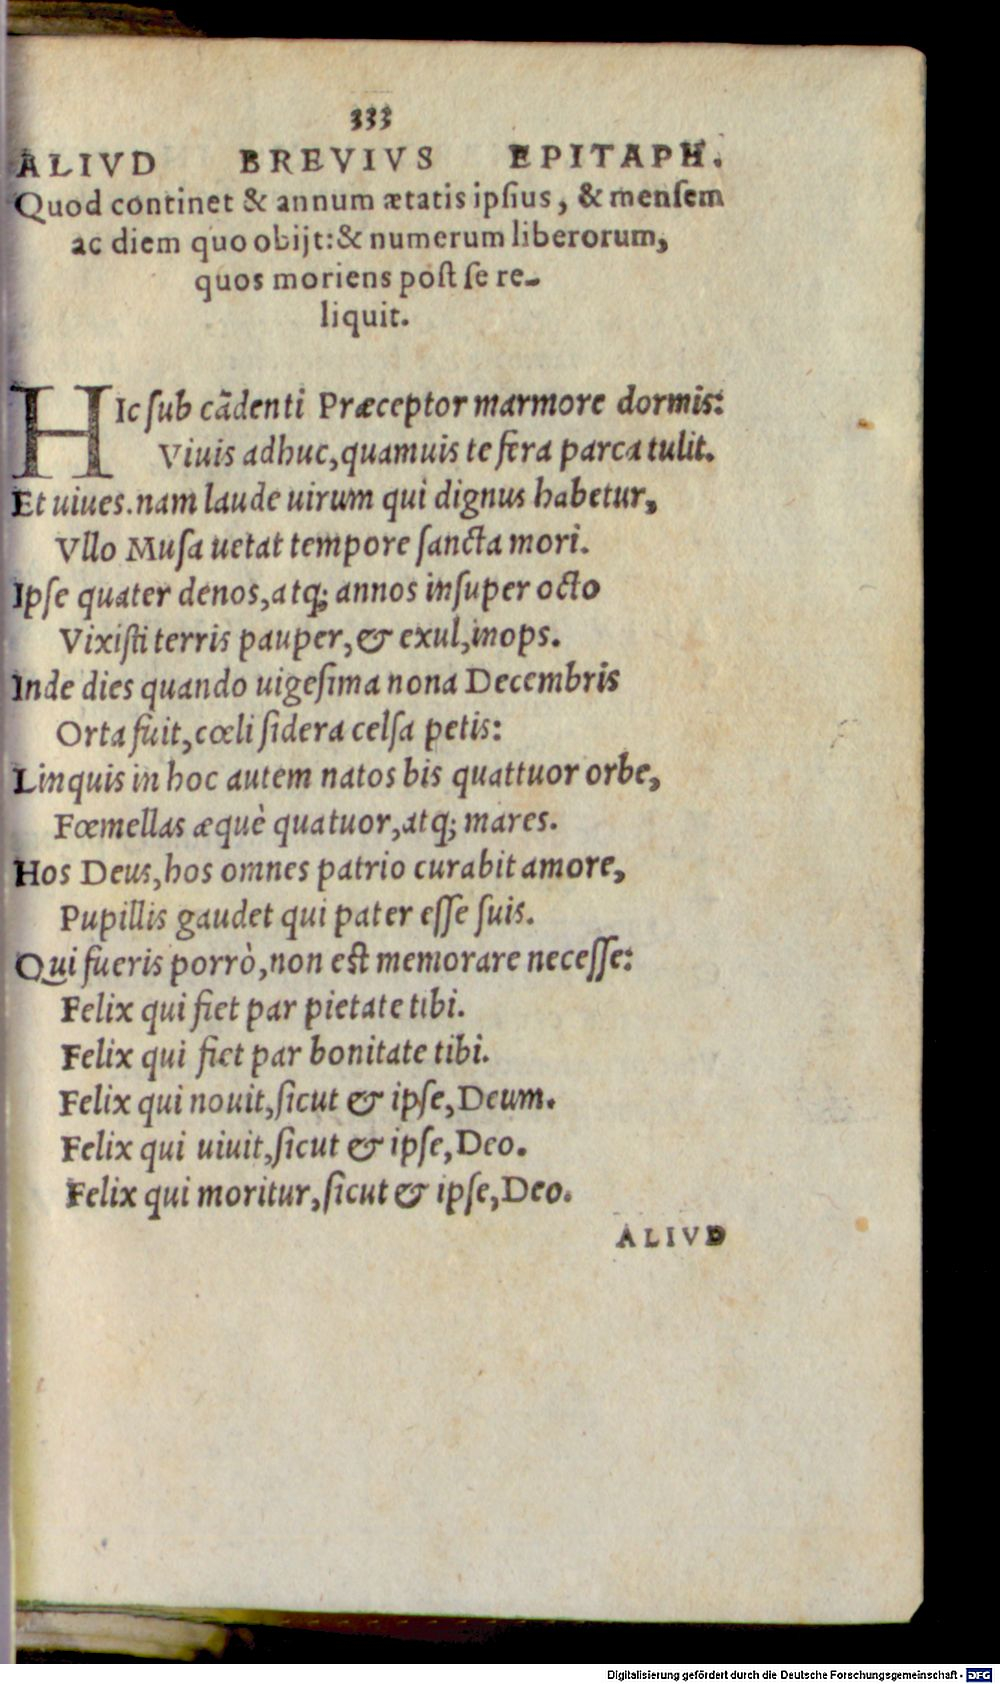 333
ALIVD BREVIVS EPITAPH.
Quod continet & annum ætatis ipsius, & mensem
ac diem quo obijt: & numerum liberorum,
quos moriens post se re-
liquit.
HIc sub cādenti Præceptor marmore dormis:
Viuis adhuc, quamuis te fera parca tulit.
Et uiues. nam laude uirum qui dignus habetur,
Vllo Musa uetat tempore sancta mori.
Ipse quater denos, atq; annos insuper octo
Vixisti terris pauper, & exul, inops.
Inde dies quando uigesima nona Decembris
Orta fuit, cœli sidera celsa petis:
Linquis in hoc autem natos bis quattuor orbe,
Fœmellas æquè quatuor, atq; mares.
Hos Deus, hos omnes patrio curabit amore,
Pupillis gaudet qui pater esse suis.
Qui fueris porrò, non est memorare necesse:
Felix qui fiet par pietate tibi.
Felix qui fiet par bonitate tibi.
Felix qui nouit, sicut & ipse, Deum.
Felix qui uiuit, sicut & ipse, Deo.
Felix qui moritur, sicut & ipse, Deo.
ALIVD
Digitalisierung gefördert durch die Deutsche Forschungsgemeinschaft - DFG